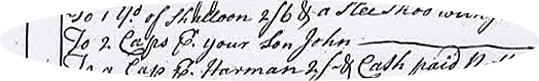 To 1 Yd. of Shalloon 2/6 & a
To 2 Caps P. your Son John
To a Cap P. Harman 2/- & Cash paid